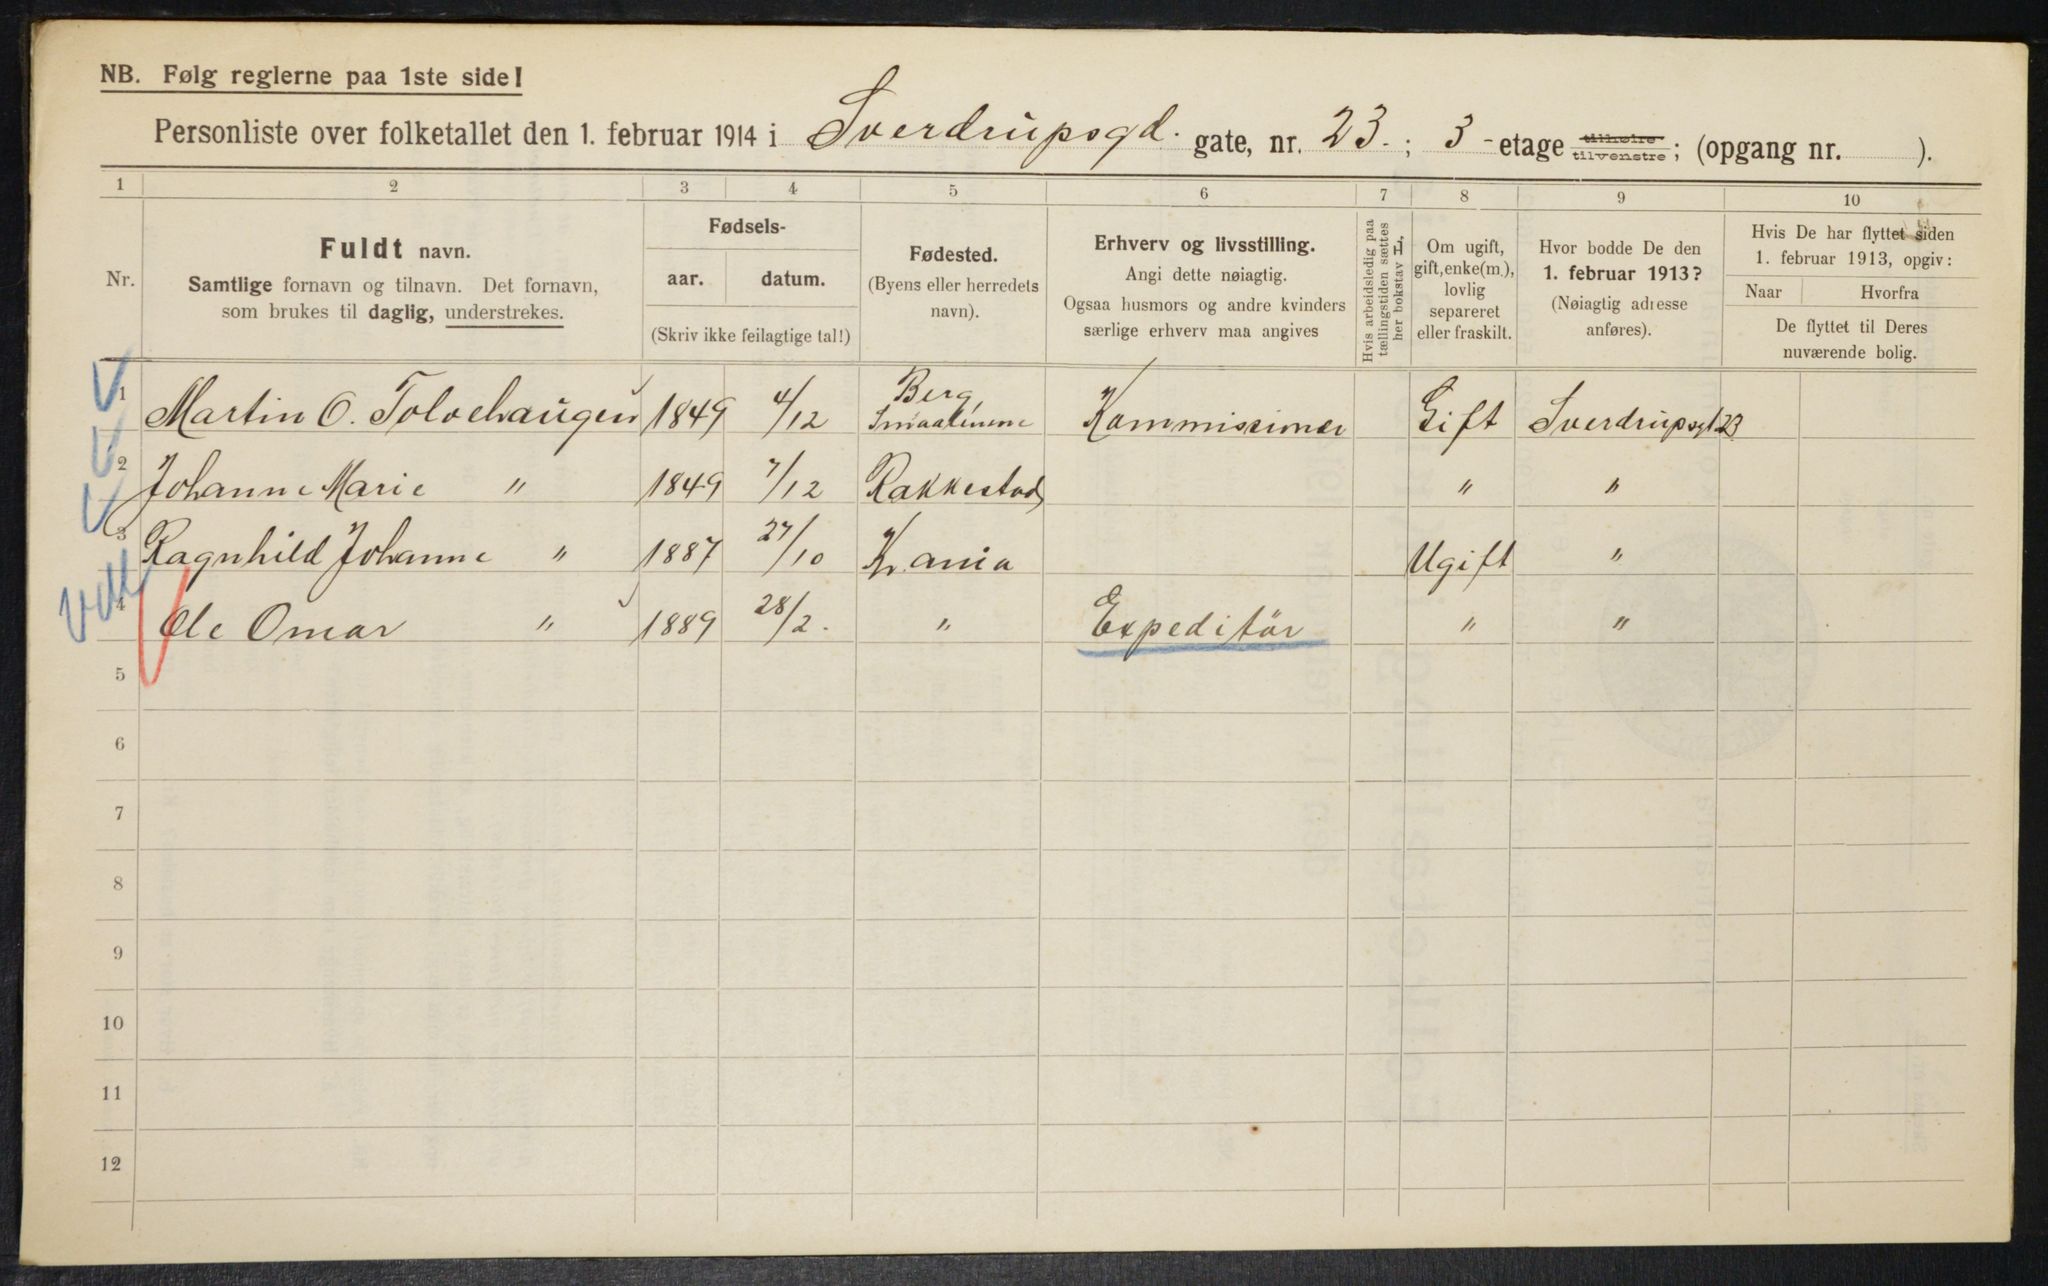 NB. Følg reglerne paa 1ste side!
Personliste over folketallet den 1. februar 1914 i Sverdrupsgd. gate, nr. 23. ; 3 - etage tilhøire tilvenstre ; (opgang nr. ).
1 2 3 4 5 6 7 8 9 10
Nr.
Fuldt navn.
Samtlige fornavn og tilnavn. Det fornavn,
som brukes til daglig, understrekes.
Fødsels-
aar. datum.
(Skriv ikke feilagtige tal!)
Fødested.
(Byens eller herredets
navn).
Erhverv og livsstilling.
Angi dette nøiagtig.
Ogsaa husmors og andre kvinders
særlige erhverv maa angives
Hvis arbeidsledig paa
tællingstiden sættes
her bokstav L.
Om ugift,
gift, enke(m.),
lovlig
separeret
eller fraskilt.
Hvor bodde De den
1. februar 1913?
(Nøiagtig adresse
anføres).
Hvis De har flyttet siden
1. februar 1913, opgiv:
Naar Hvorfra
De flyttet til Deres
nuværende bolig.
1 Martin O. Tolvehaugen 1849 4/12 Berg, Smaalenene Kommissimær Gift Sverdrupsgt 23
2 Johanne Marie " 1849 7/12 Rakkestad " "
3 Ragnhild Johanne " 1887 27/10 Kr.ania Ugift "
4 Ole Omar " 1889 28/2. " Expeditör " "
5
6
7
8
9
10
11
12